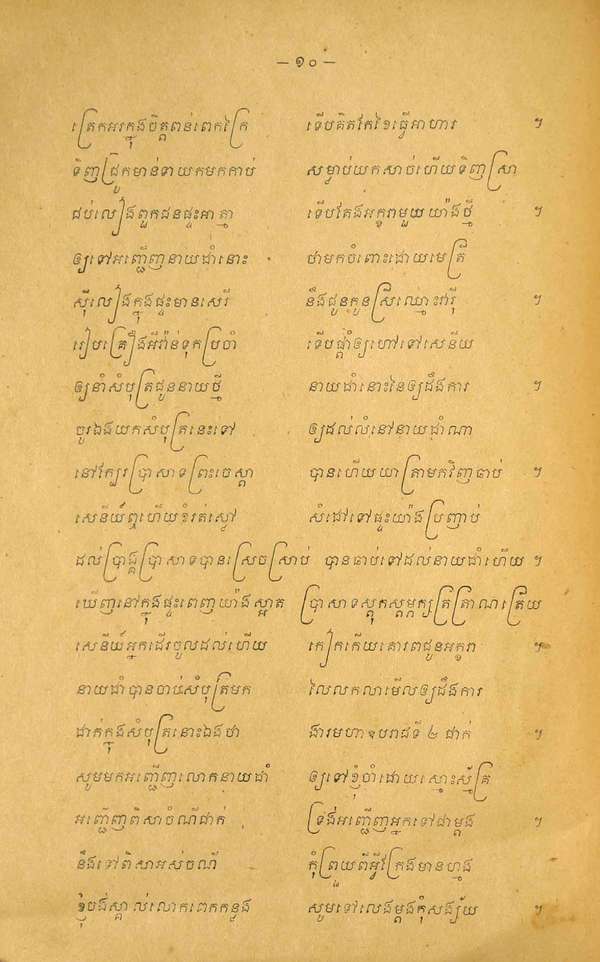 — ១០ —
ត្រេកអរក្នុងចិត្តពន់ពេកក្រៃ ទើបគិតកែខៃធ្វើអាហារ ។
ទិញជ្រូកមាន់ទាយកមកកាប់ សម្លាប់យកសាច់ហើយទិញស្រា
ជប់លៀងពួកជនផ្ទះអាត្មា ទើបតែងអក្ខរាមួយយ៉ាងថ្មី ។
ឲ្យទៅអញ្ជើញនាយជាំនោះ ថាមកចំពោះដោយមេត្រី
ស៊ីលៀងក្នុងផ្ទះមានសេរី នឹងជូនកូនស្រីឈ្មោះវារ៉ី
រៀបគ្រឿងអីវ៉ាន់ទុកប្រចាំ ទើបផ្តាំឲ្យហៅទៅសេនីយ
ឲ្យនាំសំបុត្រជូននាយថ្មី នាយជាំនោះនៃឲ្យដឹងការ ។
ចូរឯងយកសំបុត្រនេះទៅ ឲ្យដល់លំនៅនាយជាំណា
នៅក្បែរប្រាសាទព្រះចេស្តា បានហើយយាត្រាមកវិញឆាប់ ។
សេនីយ៍ឮហើយខំរត់ស្ងៅ សំដៅទៅផ្ទះយ៉ាងប្រញាប់
ដល់ប្រាង្គប្រាសាទបានស្រេចស្រាប់ បានឆាប់ទៅដល់នាយជាំហើយ ។
ឃើញនៅក្នុងផ្ទះពេញយ៉ាងស្អាត ប្រាសាទស្តុកស្តម្ភក្សត្រត្រាណត្រើយ
សេនីយ៍អ្នកដើរចូលដល់ហើយ កៀកកើយគោរពជូនអក្ខរា ។
នាយជាំបានចាប់សំបុត្រមក លៃលកលាមើលឲ្យដឹងការ
ដាក់ក្នុងសំបុត្រនោះឯងថា ងារមហាឧបរាជទី ៤ ដាក់ ។
សូមមកអញ្ជើញលោកនាយជាំ ឲ្យទៅខ្ញុំចាំដោយស្មោះស្ម័គ្រ
អញ្ជើញពិសាចំណីដាក់ ទ្រង់អញ្ជើញអ្នកទៅជាម្តង ។
នឹងទៅពិសាអស់ចណី កុំព្រួយពីអ្វីក្រែងមានហ្មង
ខ្ញុំចង់ស្គាល់លោកពេកកន្លង សូមទៅលេងម្តងកុំសង្ស័យ ។